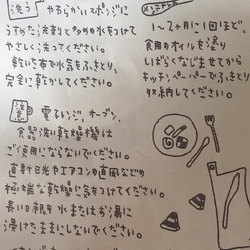 洗う やわらかいスポンジに
うすめた洗剤と多めの水をつけて
やさしく洗ってください。
乾いた布で水気をふきとり、
完全に乾かしてください。
注意 電子レンジ、オーブン、
食器洗い乾燥機は
ご使用にならないでください。
直射日光やエアコンの直風などの
極端な乾燥に気をつけてください。
長い時間 水またはお湯に
浸けたままにしないでください。
メンテナンス
1〜2ヶ月に1回ほど、
食用のオイルを塗り
しばらくなじませてから
キッチンペーパーでふきとり
収納してください。